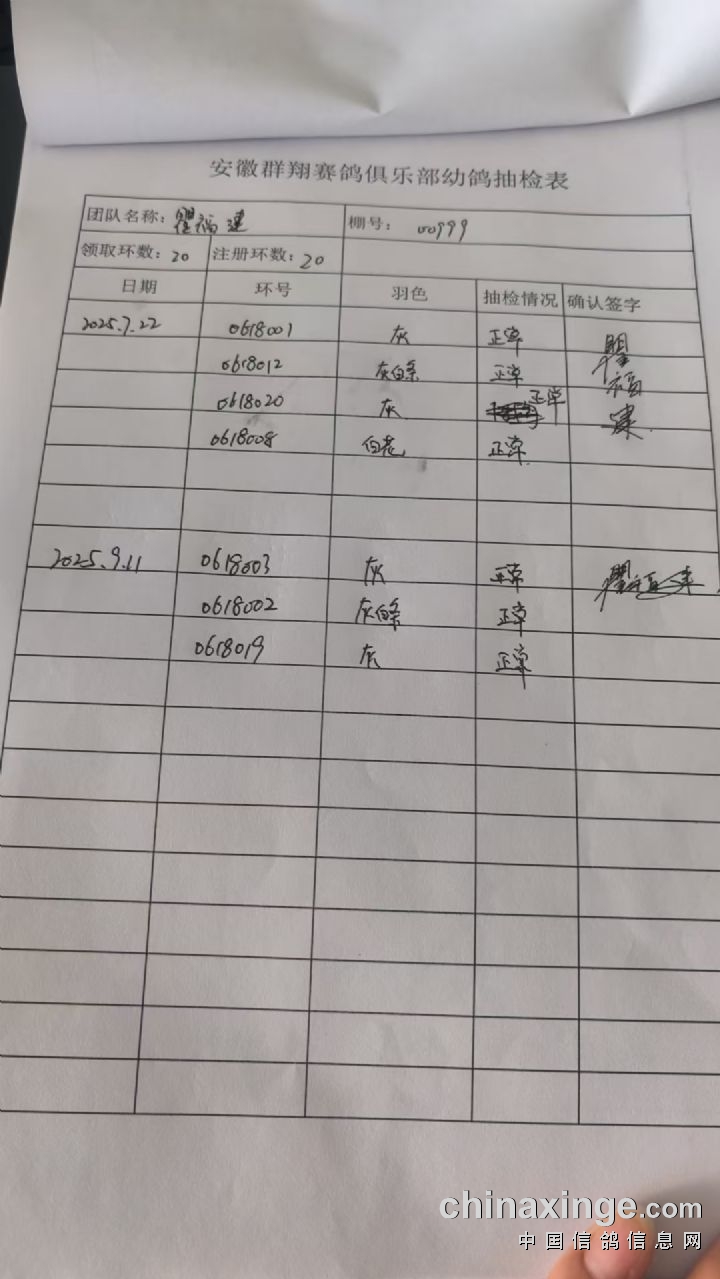 安徽群翔赛鸽俱乐部幼鸽抽检表
团队名称：瞿福建 棚号： 00999
领取环数：20 注册环数：20
日期 环号 羽色 抽检情况 确认签字
2025.7.22 0618001 灰 正常 瞿福建
0618012 灰白条 正常
0618020 灰 正常
0618008 白花 正常
2025.9.11 0618003 灰 正常 瞿福建
0618002 灰白条 正常
0618019 灰 正常
chinaxinge.com
中国信鸽信息网